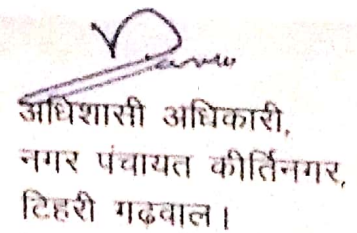 अधिशासी अधिकारी,
नगर पंचायत कीर्तिनगर,
टिहरी गढ़वाल।